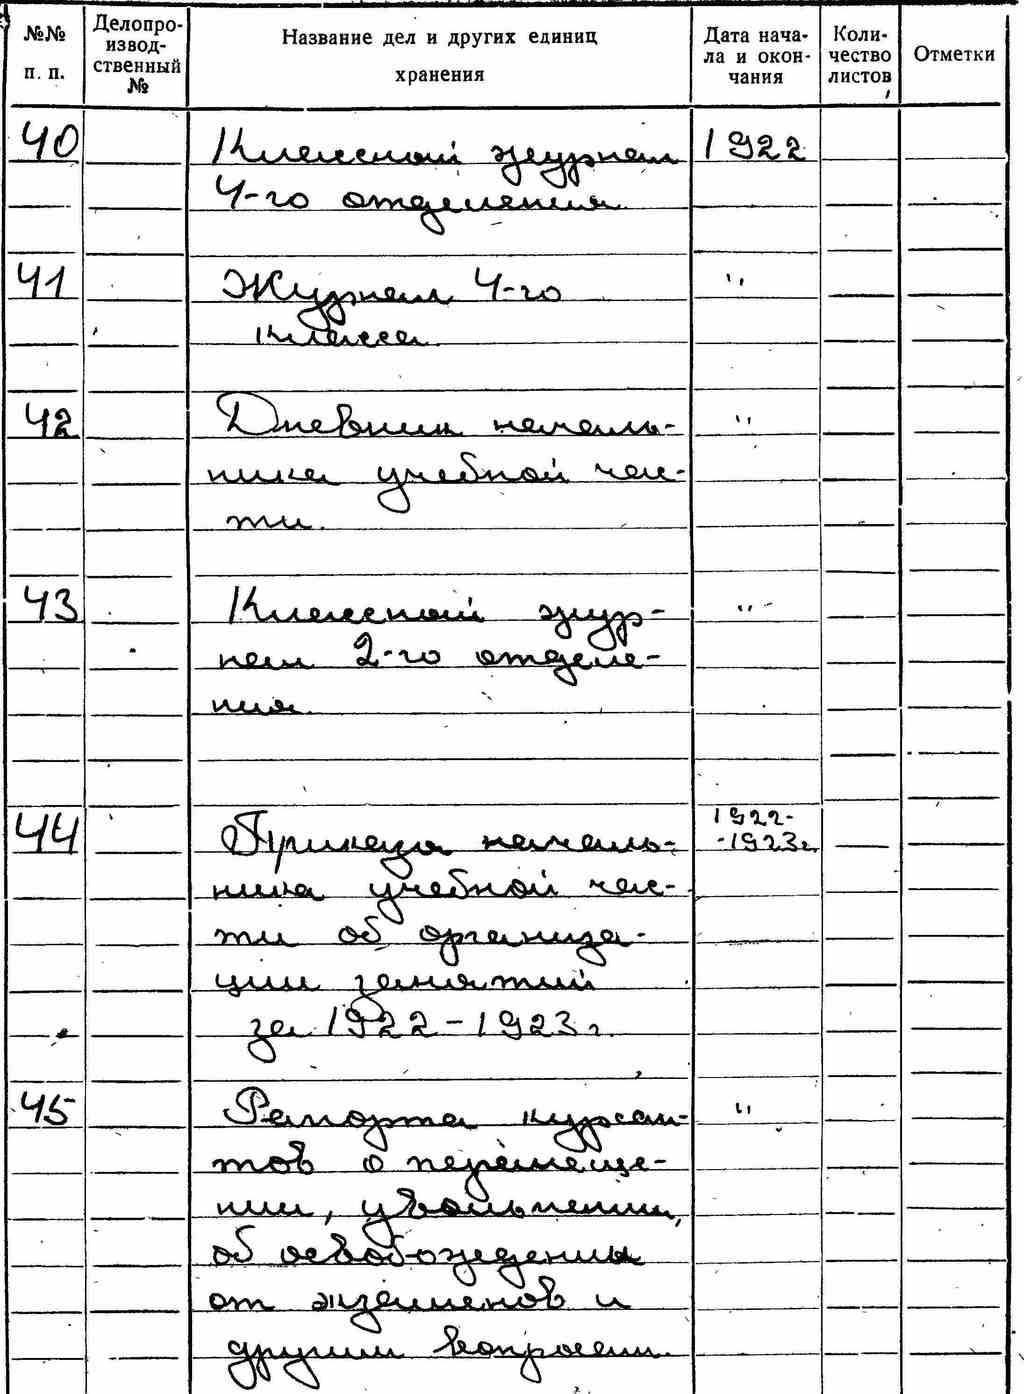 №№ п. п. Делопроизводственный № Название дел и других единиц хранения Дата начала и окончания Количество листов Отметки
40 Классный журнал 1922
4-го отделения
41 Журнал 4-го "
класса.
42 Дневник началь- "
ника учебной час-
ти.
43 Классный жур- "
нал 2-го отделе-
ния.
44 Приказы началь- 1922-
-1923г.
ника учебной час-
ти об организа-
ции занятий
за 1922-1923 г.
45 Рапорта курсан- "
тов о перемеще-
нии, увольнении,
об освобождении
от экзаменов и
другим вопросам.